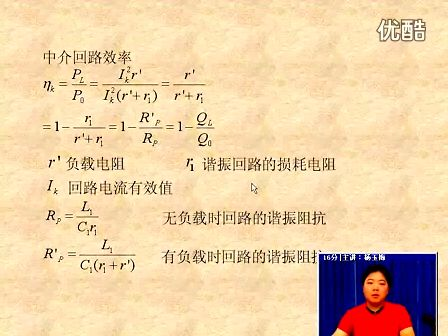 优酷
中介回路效率
η_k = P_L / P_0 = I_k² r' / I_k² (r' + r₁) = r' / r' + r₁
= 1 − r₁ / r' + r₁ = 1 − R'_P / R_P = 1 − Q_L / Q_0
r' 负载电阻 r₁ 谐振回路的损耗电阻
I_k 回路电流有效值
R_P = L₁ / C₁r₁ 无负载时回路的谐振阻抗
R'_P = L₁ / C₁(r₁ + r') 有负载时回路的谐振阻抗
16分|主讲:杨玉梅